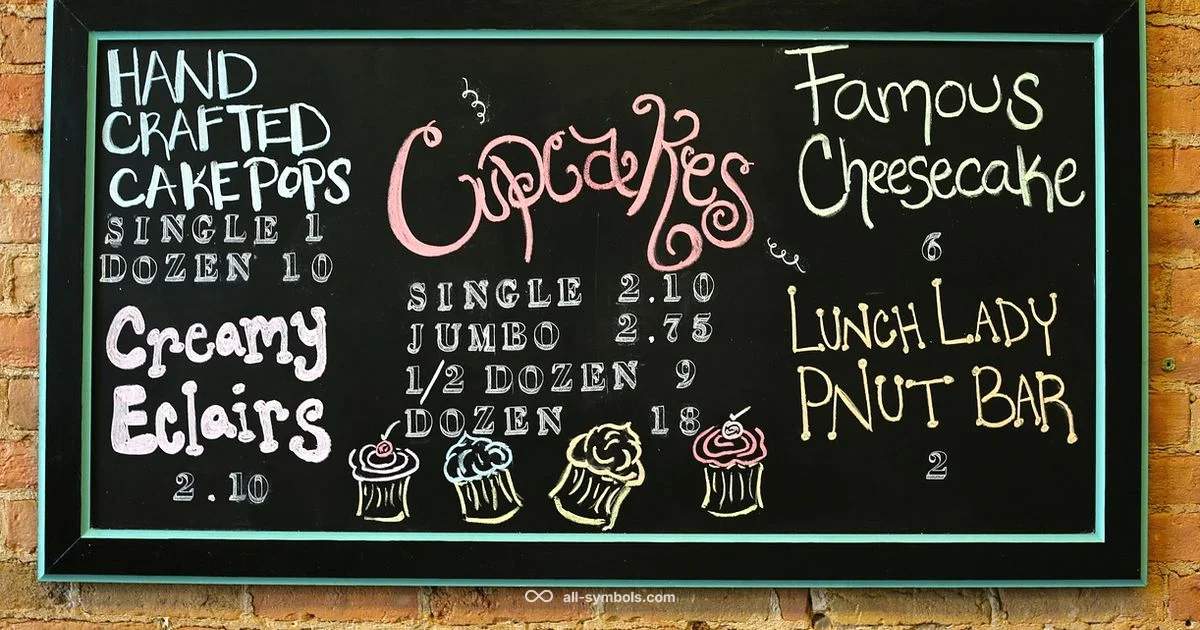 HAND
CRAFTED
CAKE POPS
SINGLE 1
DOZEN 10
Creamy
Eclairs
2.10
Cupcakes
SINGLE 2.10
JUMBO 2.75
1/2 DOZEN 9
DOZEN 18
Famous
Cheesecake
6
LUNCH LADY
PNUT BAR
2
all-symbols.com